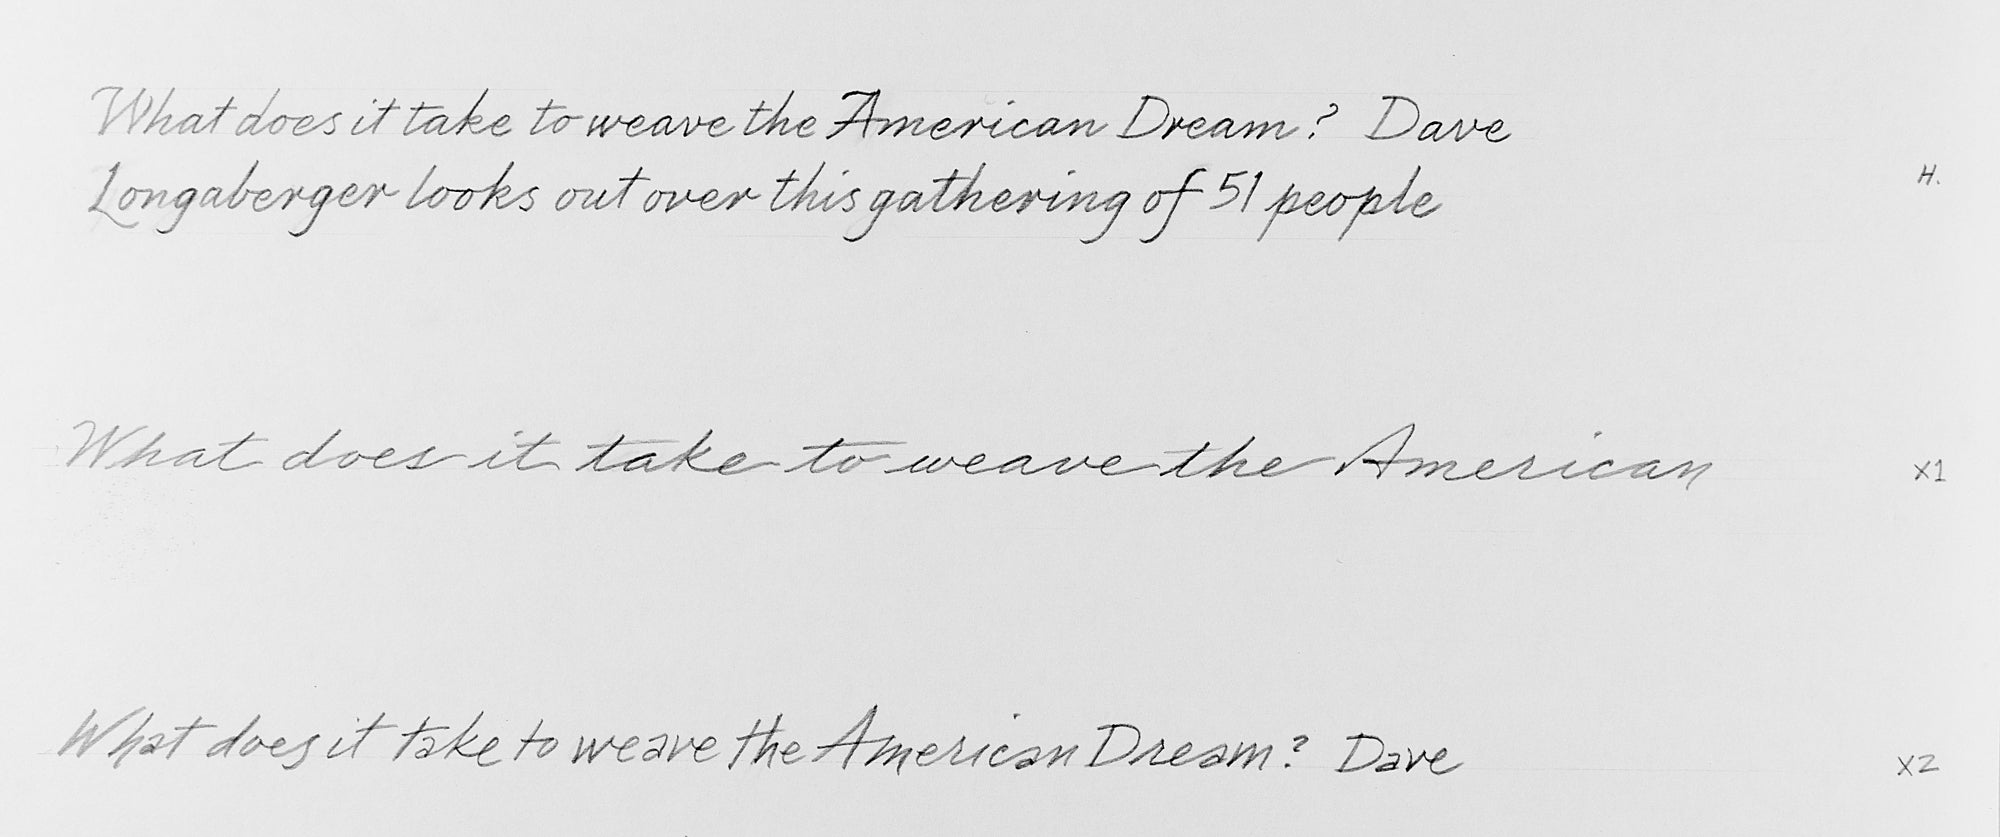 What does it take to weave the American Dream? Dave
Longaberger looks out over this gathering of 51 people
H.
What does it take to weave the American
X1
What does it take to weave the American Dream? Dave
X2